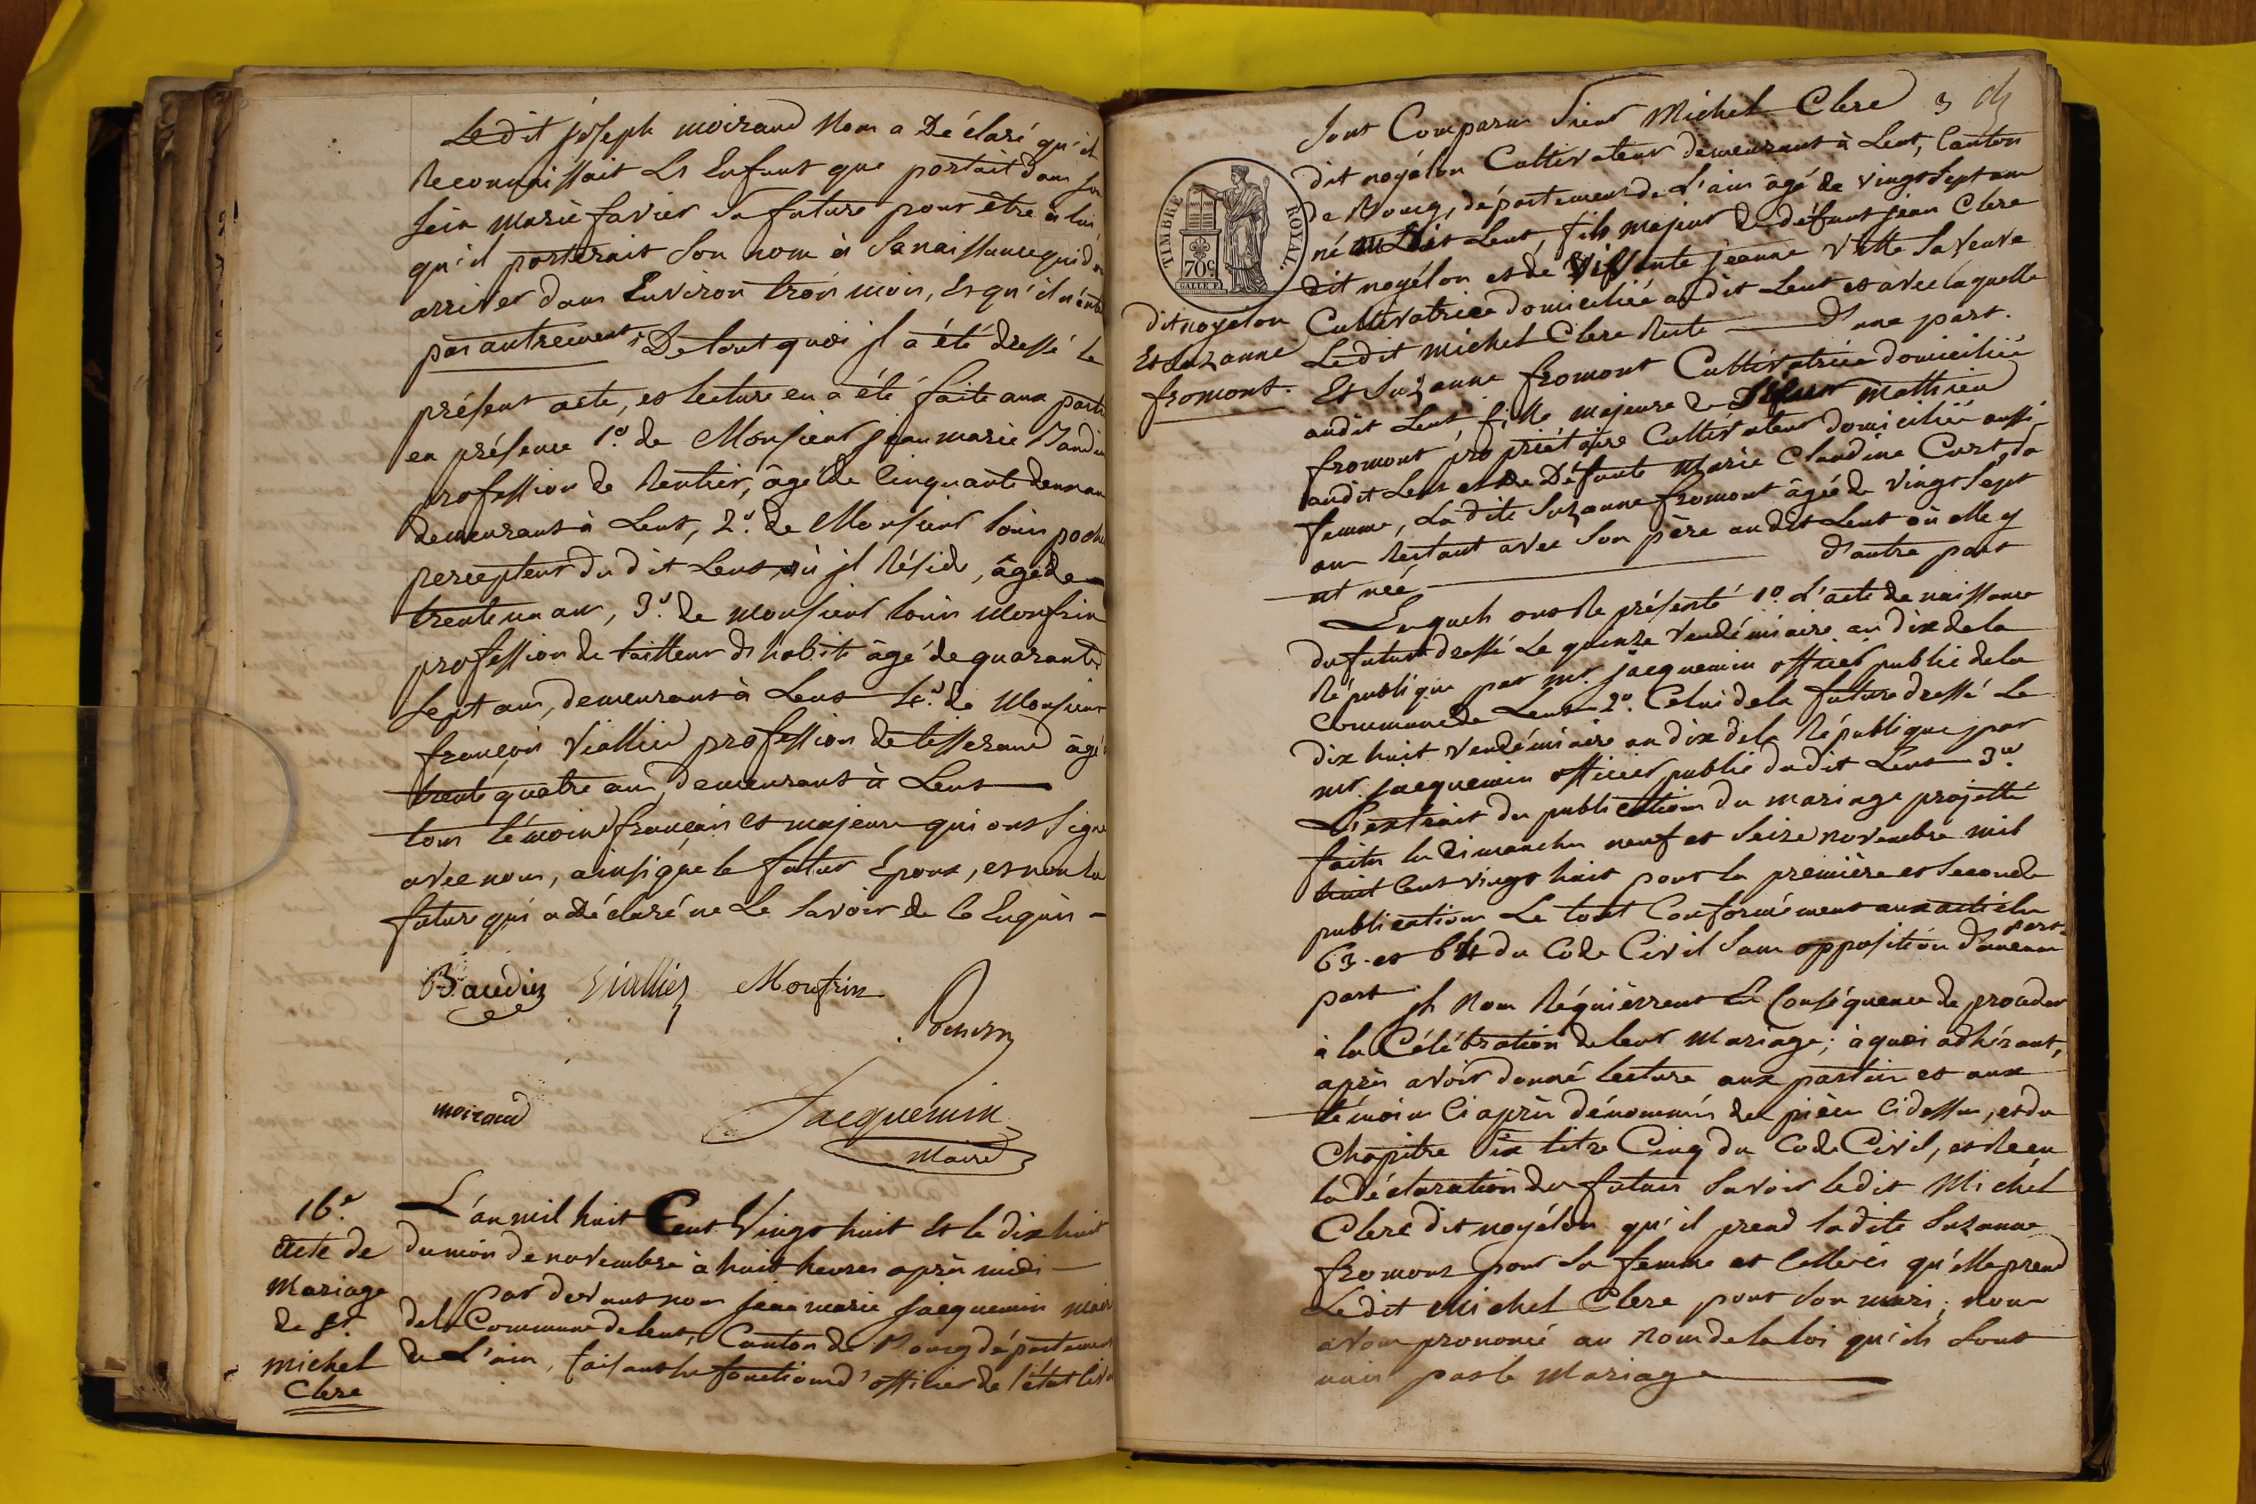 Ledit joseph moiraud Nous a Déclaré qu'il
Reconnaissait Ls Enfant que portait dans son
sein marie favier sa future pour être à lui,
qu'il porterait son nom à sa naissance qui doit
arriver dans Environ trois mois, Et qu'il n'entend
pas autrement. De tout quoi jl a été dressé le
présent acte, et lecture en a été faite aux parties
en présence 1º. de Monsieur jean marie Baudin
profession de Rentier, âgé de Cinquante deux ans
demeurant à Lent, 2º. de Monsieur louis pochon
percepteur du dit Lent, où jl Réside, âgé de
trente un ans, 3º. de monsieur louis monfrin
profession de tailleur d'habits âgé de quarante
sept ans, demeurant à Lent 4º. de Monsieur
françois Viallier profession de tisserand âgé
trente quatre ans, demeurant à Lent
tous témoins français et majeurs qui ont signé
avec nous, ainsi que le futur Epoux, et non la
future qui a Déclaré ne Le savoir de ce Enquis
Baudin Viallier Monfrin
Pochon
moiraud Jacquemin
Maire
16e.
Acte de
Mariage
de Sr.
Michel
Clere
L'an mil huit Cent Vingt huit Et le dix huit
du mois de novembre à huit heures après midi
Par devant nous jean marie Jacquemin maire
de la Commune de Lent, Canton de Bourg département
de L'ain, faisant les fonctions d'officier de l'état civil
3
Sont Comparus Sieur Michel Clere
dit noyélon Cultivateur demeurant à Lent, Canton
de Bourg, département de L'ain âgé de vingt sept ans
né audit Lent, fils majeur de défunt jean Clere
dit noyélon et de Vissante jeanne Vitte sa Veuve
Cultivatrice domiciliée audit Lent et avec laquelle
Ledit Michel Clere Reste d'une part.
TIMBRE ROYAL
70c
dit noyelon
Et Suzanne
fromont.
Et Suzanne fromont Cultivatrice domiciliée
audit Lent, fille majeure de Sieur Mathieu
fromont propriétaire Cultivateur domicilié aussi
audit Lent et de Défunte Marie Claudine Curt, sa
femme, La dite Suzanne fromont âgée de Vingt sept
ans Restant avec son père audit Lent où elle y
est née d'autre part
Lesquels ont Représenté 1º. L'acte de naissance
du futur dressé Le quinze Vendémiaire an dix de la
République par mr. jacquemin officier public de la
Commune de Lent 2º. Celui de la future dressé Le
dix huit Vendémiaire an dix de la République, par
mr. jacquemin officier public dudit Lent 3º.
L'extrait des publications du mariage projetté
faites les dimanches neuf et seize novembre mil
huit Cent vingt huit pour la première et seconde
publication Le tout Conformément aux articles
63. et 64 du Code Civil sans opposition d'aucune
part
part jls Nous Réquièrent En Conséquence de procéder
à la Célébration de leur Mariage; à quoi adhérant,
après avoir donné lecture aux parties et aux
témoins Ci après dénommés des pièces Ci dessus, et du
Chapitre Six titre Cinq du Code Civil, et Reçu
la déclaration des futurs savoir ledit Michel
Clere dit noyélon qu'il prend ladite Suzanne
fromont pour sa femme et Celleci qu'elle prend
Ledit Michel Clere pour son mari; nous
avons prononcé au Nom de la loi qu'ils sont
unis par le Mariage